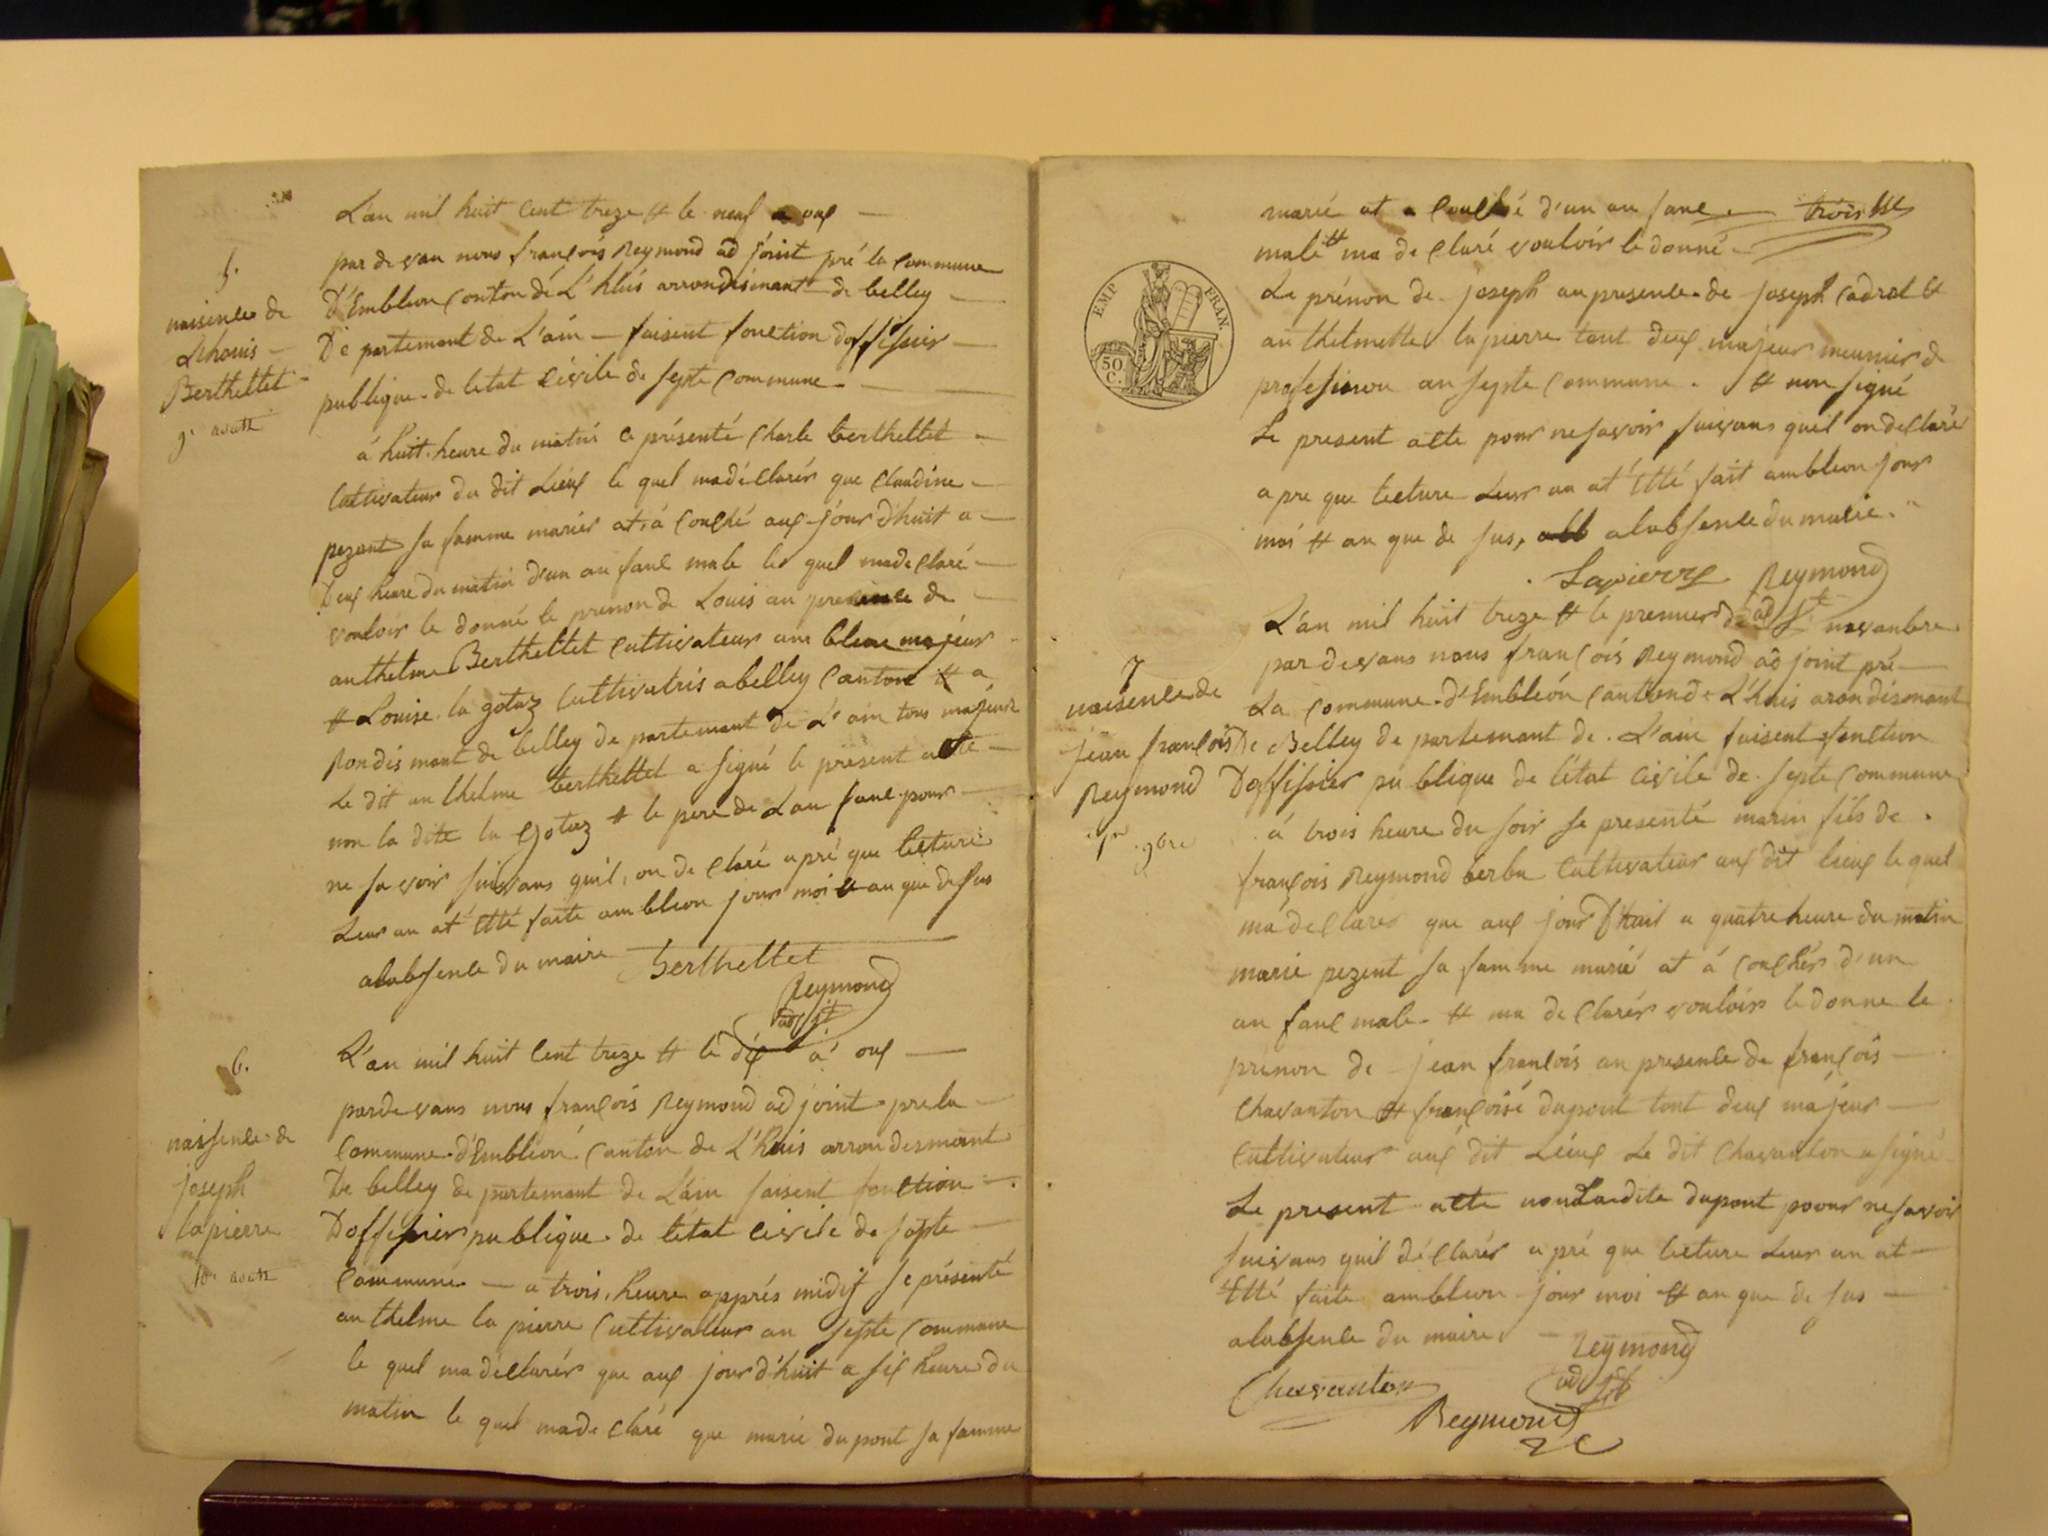 5.
naisence de
Lhouis
Berthellet
9e aoutt
L'an mil huit cent treze et le neuf a ouf
par de van nous françois Reymond ad joint pré la commune
D'Embleon Canton dé L'huis arrondisimant de belley
Dé partemant de L'ain faisent fonction doffisier
publique de letat Civile de septe Commune
à huit heure du matin ce présenté Charle berthellet
Cultivateur du dit Lieux le quel madéclarér que Claudine
pezant sa famme mariér at à Couché aux jour d'huit a
Deux heure du matin d'un an fanc male le quel madeClaré
vouloir le donné le prenon de Louis an presence de
anthelme Berthellet Cultivateur am bleon majeur
et Louise la gotaz Cultivatris a belley Canton et a
Rondis mant de belley de partemant de L'ain tous majeur
Le dit an thelme berthellet a signé le présent acte
non la dite la Gotaz et le pere de Lan fanc pour
ne sa voir suivans quil on de claré a pré que lecture
Leur an at Etté faite am bleon jour moi et an que desus
alabsence du maire Berthellet
Reymond
adjt
6.
naissence de
joseph
lapierre
10e aoutt
L'an mil huit Cent treze et le dix à oux
parde vans nous françois Reymond ad joint pre la
Commune d'Embleon Canton de L'huis arrondesmant
De belley de partemant de L'ain faisent fonction
Doffisier publique de létat Civile de septe
Commune a trois heure apprés midif se présenté
an thelme la pierre Cultivateur an septe Commune
le quel ma déclarér que aux jour d'huit a six heure du
matin le quel made claré que marie du pont sa famme
EMP. FRAN.
50 C.
marié at a Couché d'un an fanc
male et ma de Claré vouloir le donné
Le prénon de joseph an presence de joseph Cadrot et
an thelmette la pierre tout deux majeur meunier de
profession an septe Commune et non signé
Le present acte pour ne savoir suivans quil on de Clarér
a pre que lecture Leur an at Etté fait ambleon jour
moi et an que de sus, alabsence du maire
Lapierre Reymond
adjt
7
naisence de
jean françois
Reymond
1er 9bre
L'an mil huit treze et le premier de novanbre
par devans nous françois Reymond ad joint pré
La Commune d'Embléon Canton de L'huis arondisemant
De Belley de partemant de L'ain faisent fonction
Doffisier publique de létat Civile de septe Commune
à trois heure du soir se presenté marin fils de
françois Reymond berba Cultivateur aux dit lieux le quel
ma de Clarér que aux jour D'huit a quatre heure du matin
marie pezent sa famme marié at à Couchér d'un
an fanc male et ma de Clarér vouloir le donne le
prenon de jean françois an presence de françois
Chavanton et françoise dupont tout deux majeur
Cultivateur aux dit Lieux Le dit Chavanton a signé
Le present acte non La dite dupont poour ne savoir
suivans quil déClarér a pré que lecture Leur an at
Etté faite ambleon jour moi et an que de sus
alabsence du maire Reymond
adjt
Chavanton
Reymond